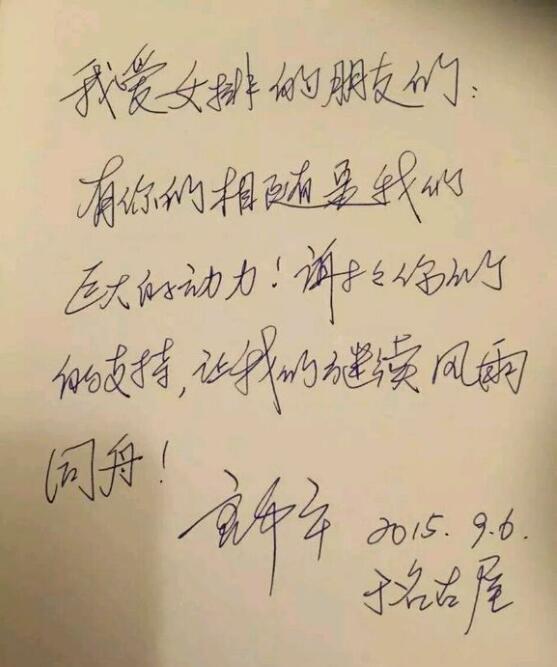 我爱女排的朋友们:
有你们相随是我们
巨大的动力!谢谢你们
的支持,让我们继续风雨
同舟!
2015.9.6.
于名古屋